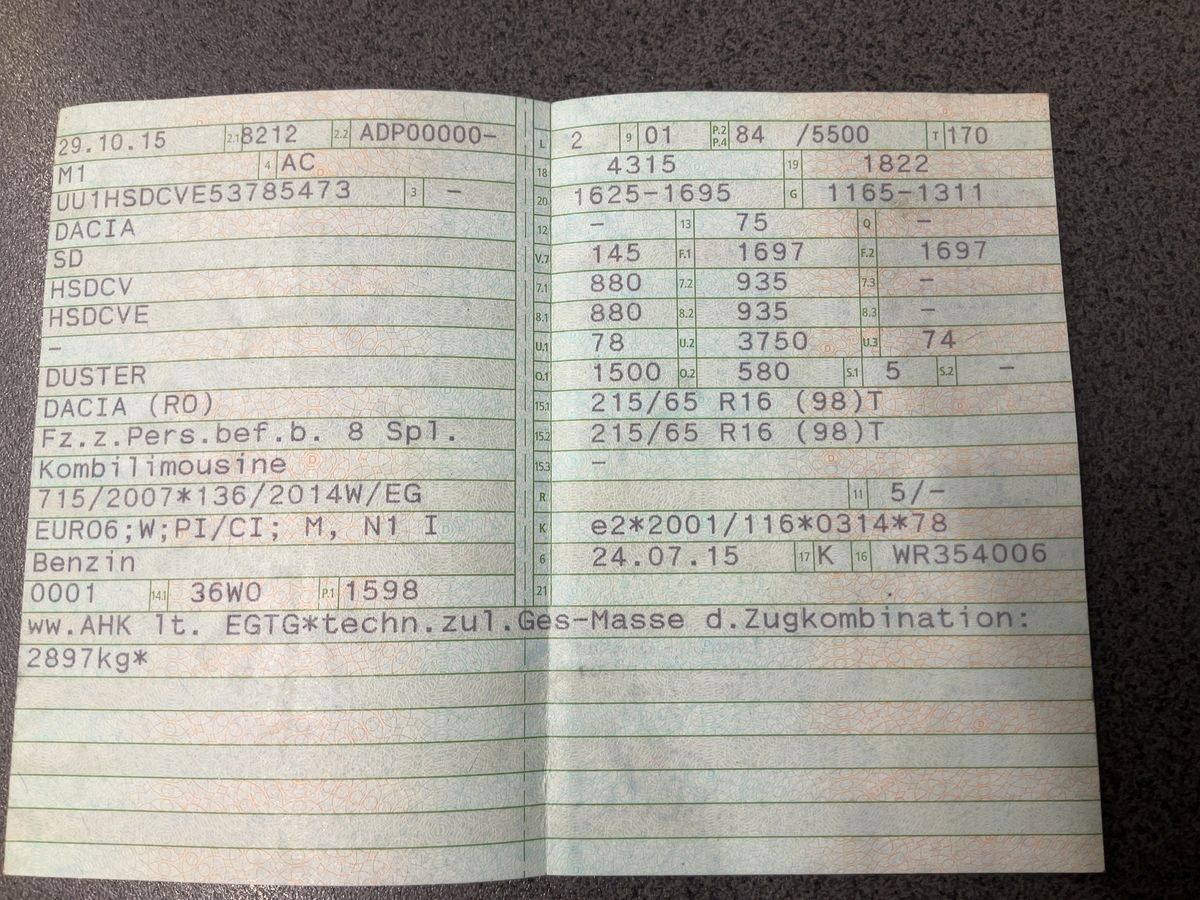 29.10.15 2.1 8212 2.2 ADP00000-
M1 4 AC
UU1HSDCVE53785473 3 –
DACIA
SD
HSDCV
HSDCVE
–
DUSTER
DACIA (RO)
Fz.z.Pers.bef.b. 8 Spl.
Kombilimousine
715/2007*136/2014W/EG
EURO6;W;PI/CI; M, N1 I
Benzin
0001 14.1 36W0 P.1 1598
L 2 9 01 P.2 P.4 84 /5500 T 170
18 4315 19 1822
20 1625-1695 G 1165-1311
12 – 13 75 Q –
V.7 145 F.1 1697 F.2 1697
7.1 880 7.2 935 7.3 –
8.1 880 8.2 935 8.3 –
U.1 78 U.2 3750 U.3 74
O.1 1500 O.2 580 S.1 5 S.2 –
15.1 215/65 R16 (98)T
15.2 215/65 R16 (98)T
15.3 –
R 11 5/–
K e2*2001/116*0314*78
6 24.07.15 17 K 16 WR354006
21
ww.AHK lt. EGTG*techn.zul.Ges-Masse d.Zugkombination:
2897kg*